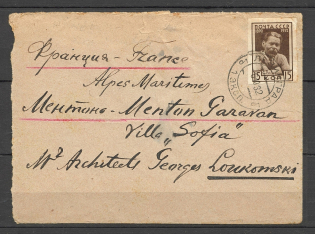 Франция - France
Alpes Maritimes
Ментона - Menton Garavan
Villa "Sofia"
Mr Architects Georges Loukomski
ПОЧТА СССР
15 15